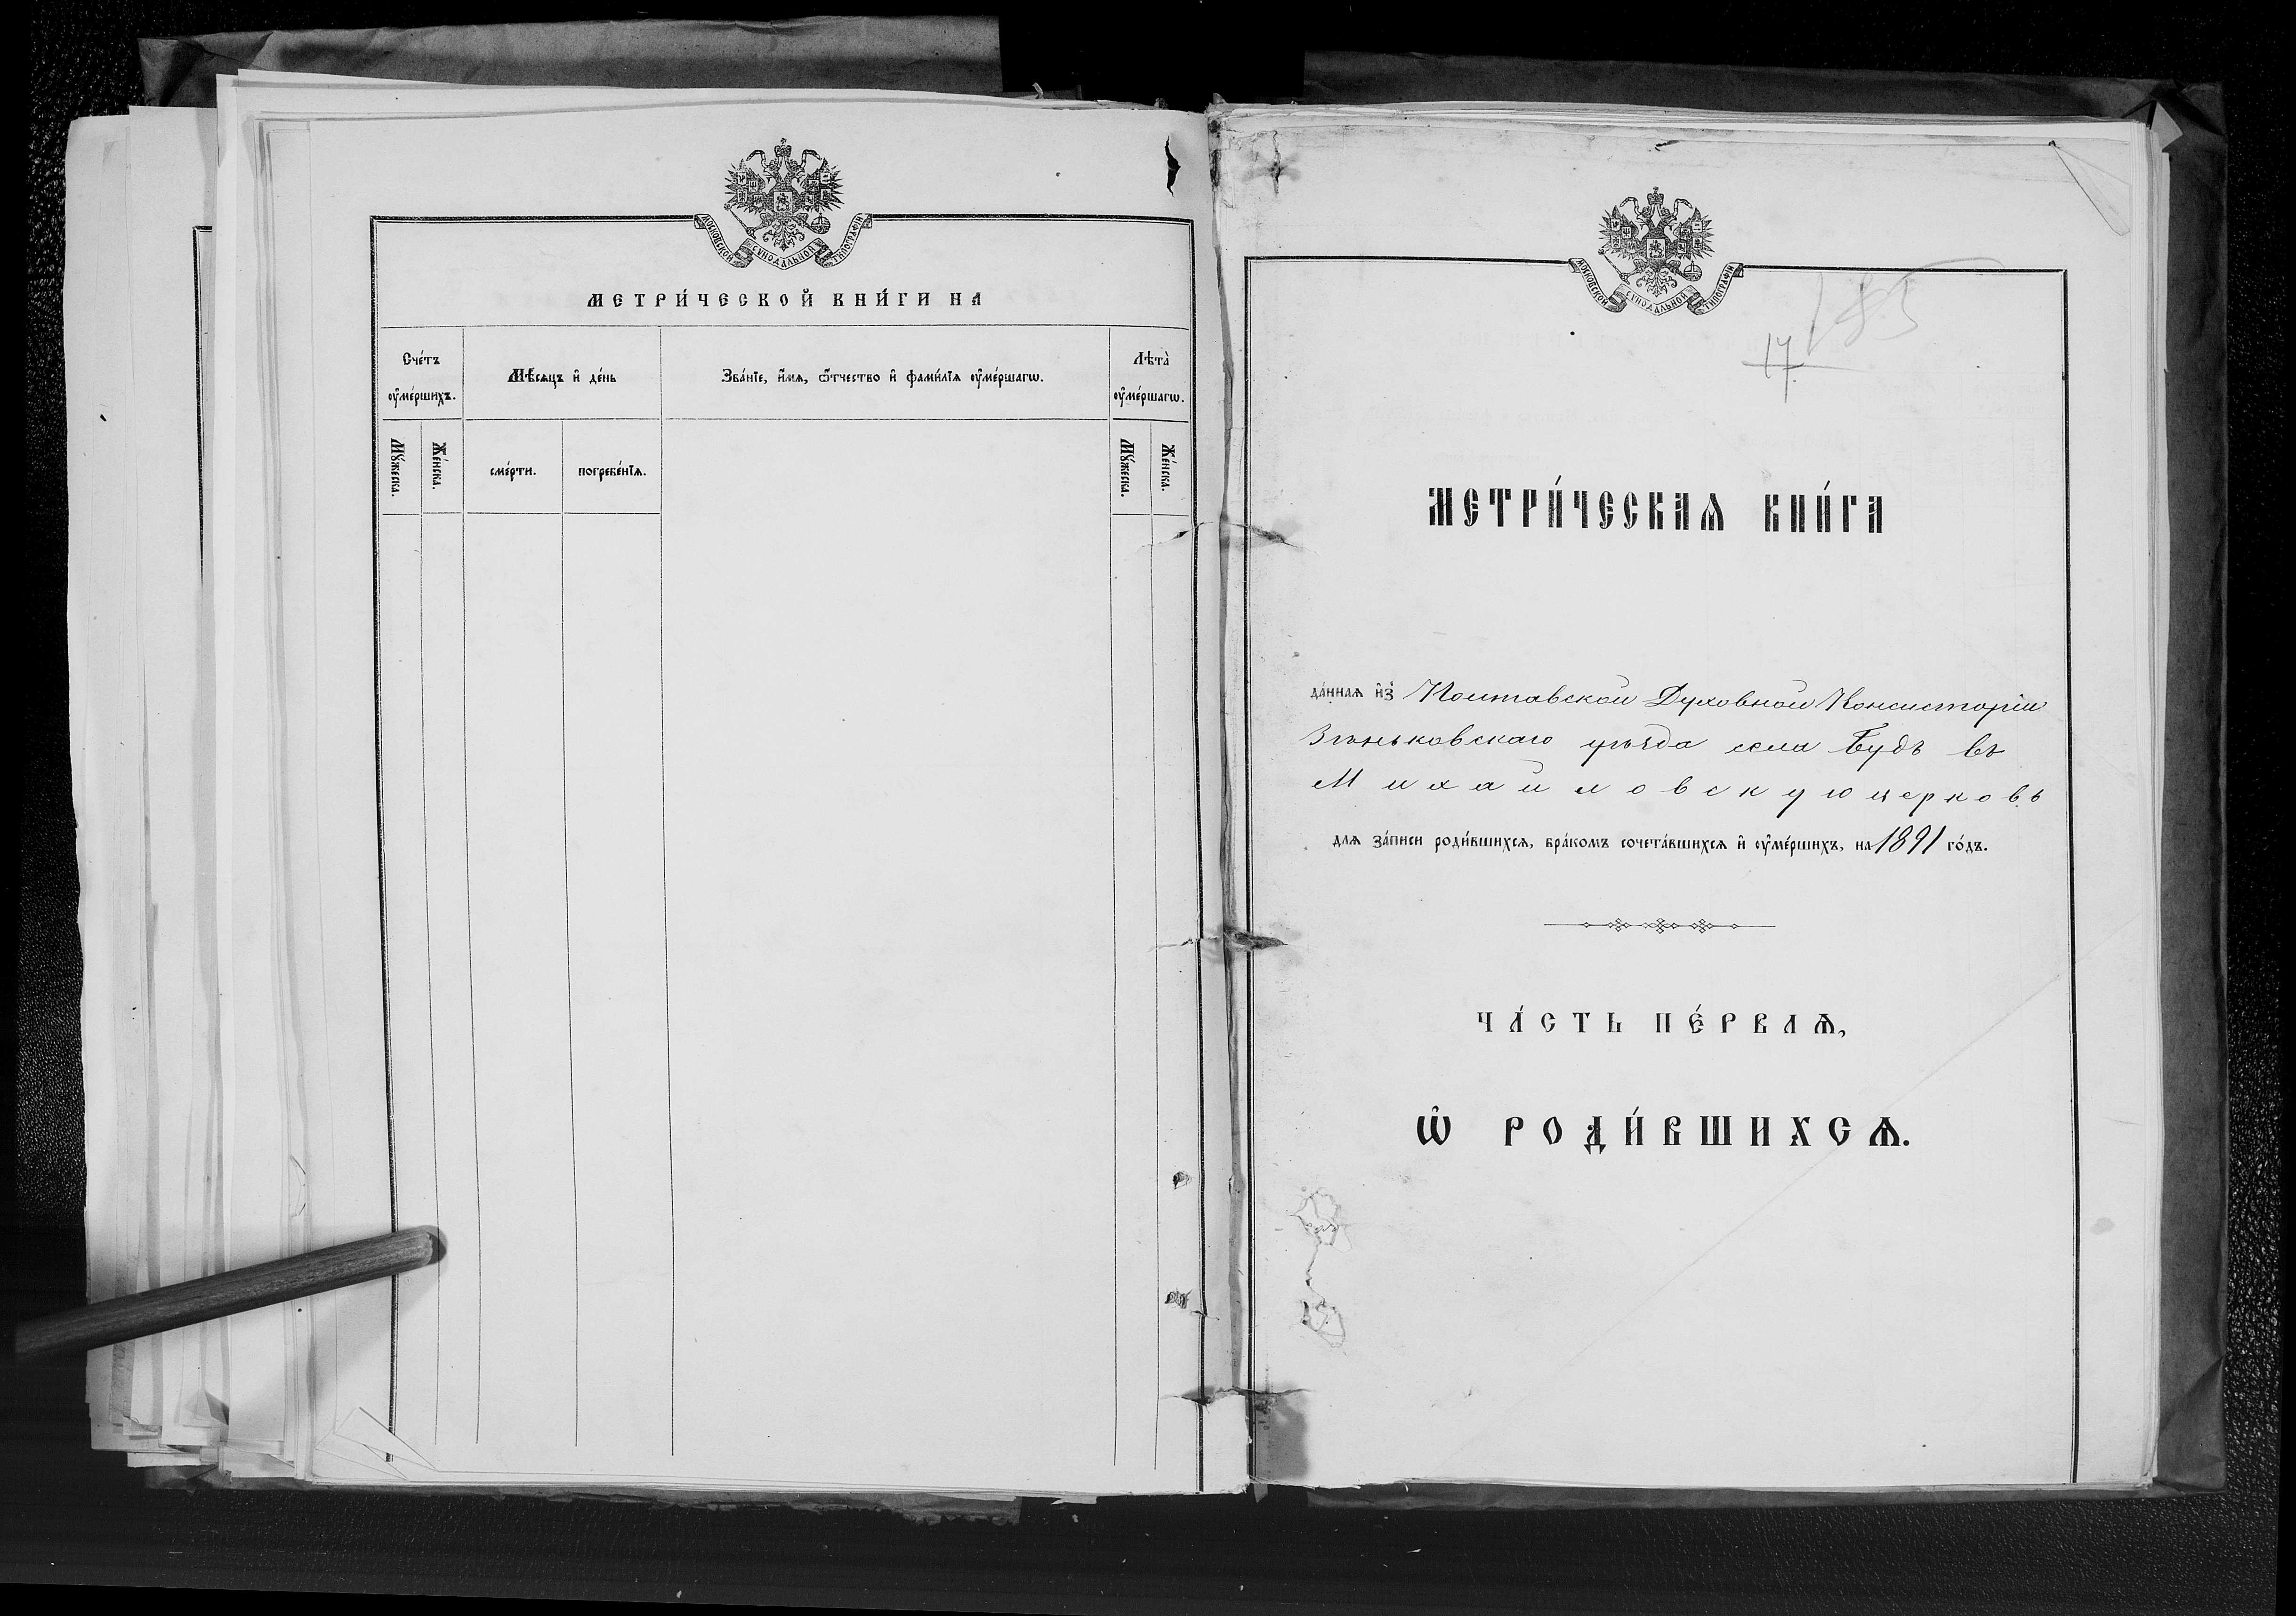 МОСКОВСКОЙ СѴНОДАЛЬНОЙ ТИПОГРАФІИ
МЕТРИ́ЧЕСКОЙ КНИ́ГИ НА
Сче́тъ
ᲂу҆ме́ршихъ.
Мѣ́сяцъ и҆ де́нь
Зва́нїе, и҆́мѧ, ѻ҆́тчество и҆ фами́лїѧ ᲂу҆ме́ршагѡ.
Лѣта̀
ᲂу҆ме́ршагѡ.
Мꙋ́жеска.
Же́нска.
сме́рти.
погребе́нїѧ.
Мꙋ́жеска.
Же́нска.
МОСКОВСКОЙ СѴНОДАЛЬНОЙ ТИПОГРАФІИ
185
17
МЕТРИ́ЧЕСКАѦ КНИ́ГА
да́ннаѧ и҆з̾ Полтавской Духовной Консисторіи
Зѣньковскаго уѣзда села Будъ въ
Михайловскую церковь
длѧ за́писи роди́вшихсѧ, бра́комъ сочета́вшихсѧ и҆ ᲂу҆ме́ршихъ, на 1891 го́дъ.
ЧА́СТЬ ПЕ́РВАѦ,
Ѡ҆ РОДИ́ВШИХСѦ.